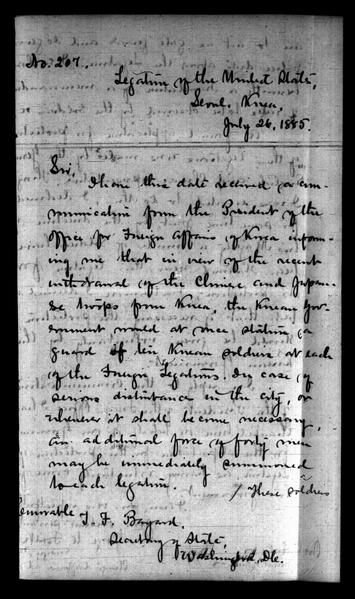 No. 207.
Legation of the United States,
Seoul, Korea,
July 26, 1885.
Sir,
I have this date received a com-
munication from the President of the
Office for Foreign Affairs of Korea inform-
ing me that in view of the recent
withdrawal of the Chinese and Japan-
ese troops from Korea, the Korean Gov-
ernment would at once station a
guard of ten Korean soldiers at each
of the Foreign Legations. In case of
serious disturbance in the city, or
whenever it shall become necessary,
an additional force of forty men
may be immediately summoned
to each legation.
These soldiers
Honorable
T. F. Bayard,
Secretary of State,
Washington, D.C.